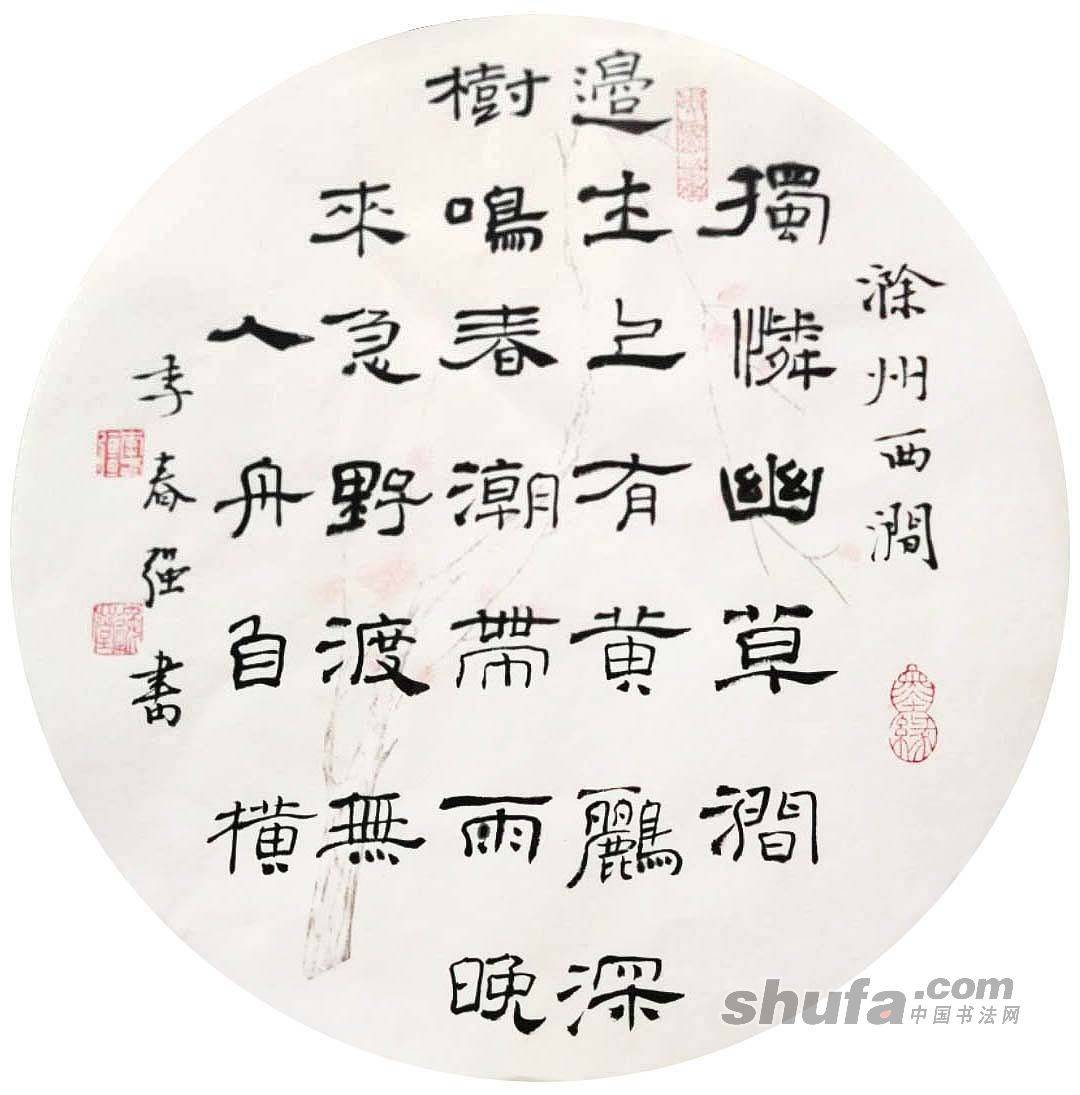 滁州西澗
獨憐幽草澗
邊生上有黄鸝深
樹鳴春潮帶雨晚
來急野渡無
人舟自橫
李春强書
墨緣
shufa.com
中国书法网